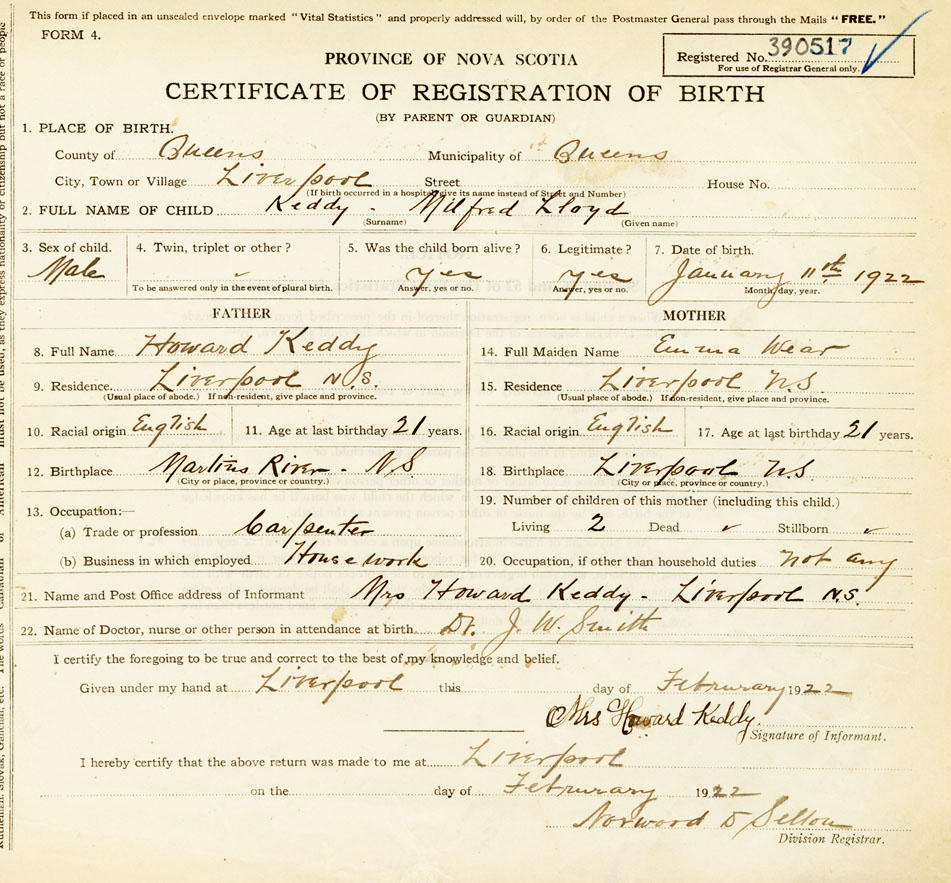 This form if placed in an unsealed envelope marked "Vital Statistics" and properly addressed will, by order of the Postmaster General pass through the Mails "FREE."
FORM 4.
Registered No. 390517
For use of Registrar General only.
PROVINCE OF NOVA SCOTIA
CERTIFICATE OF REGISTRATION OF BIRTH
(BY PARENT OR GUARDIAN)
1. PLACE OF BIRTH.
County of Queens Municipality of Queens
City, Town or Village Liverpool Street House No.
(If birth occurred in a hospital give its name instead of Street and Number)
2. FULL NAME OF CHILD Keddy - Milfred Lloyd
(Surname) (Given name)
3. Sex of child. 4. Twin, triplet or other? 5. Was the child born alive? 6. Legitimate? 7. Date of birth.
Male yes yes January 11th 1922
To be answered only in the event of plural birth. Answer, yes or no. Answer, yes or no. Month, day, year.
FATHER MOTHER
8. Full Name Howard Keddy 14. Full Maiden Name Emma Wear
9. Residence. Liverpool N.S. 15. Residence Liverpool N.S
(Usual place of abode.) If non-resident, give place and province. (Usual place of abode.) If non-resident, give place and province.
10. Racial origin English 11. Age at last birthday 21 years. 16. Racial origin English 17. Age at last birthday 21 years.
12. Birthplace Martins River - N.S 18. Birthplace Liverpool N.S
(City or place, province or country.) (City or place, province or country.)
13. Occupation:— 19. Number of children of this mother (including this child.)
(a) Trade or profession Carpenter Living 2 Dead Stillborn
(b) Business in which employed House work 20. Occupation, if other than household duties not any
21. Name and Post Office address of Informant Mrs Howard Keddy - Liverpool N.S.
22. Name of Doctor, nurse or other person in attendance at birth Dr. J. W. Smith
I certify the foregoing to be true and correct to the best of my knowledge and belief.
Given under my hand at Liverpool this day of Februrary 1922
Mrs Howard Keddy.
Signature of Informant.
I hereby certify that the above return was made to me at Liverpool
on the day of Februrary 1922
Norwood D Sellon
Division Registrar.